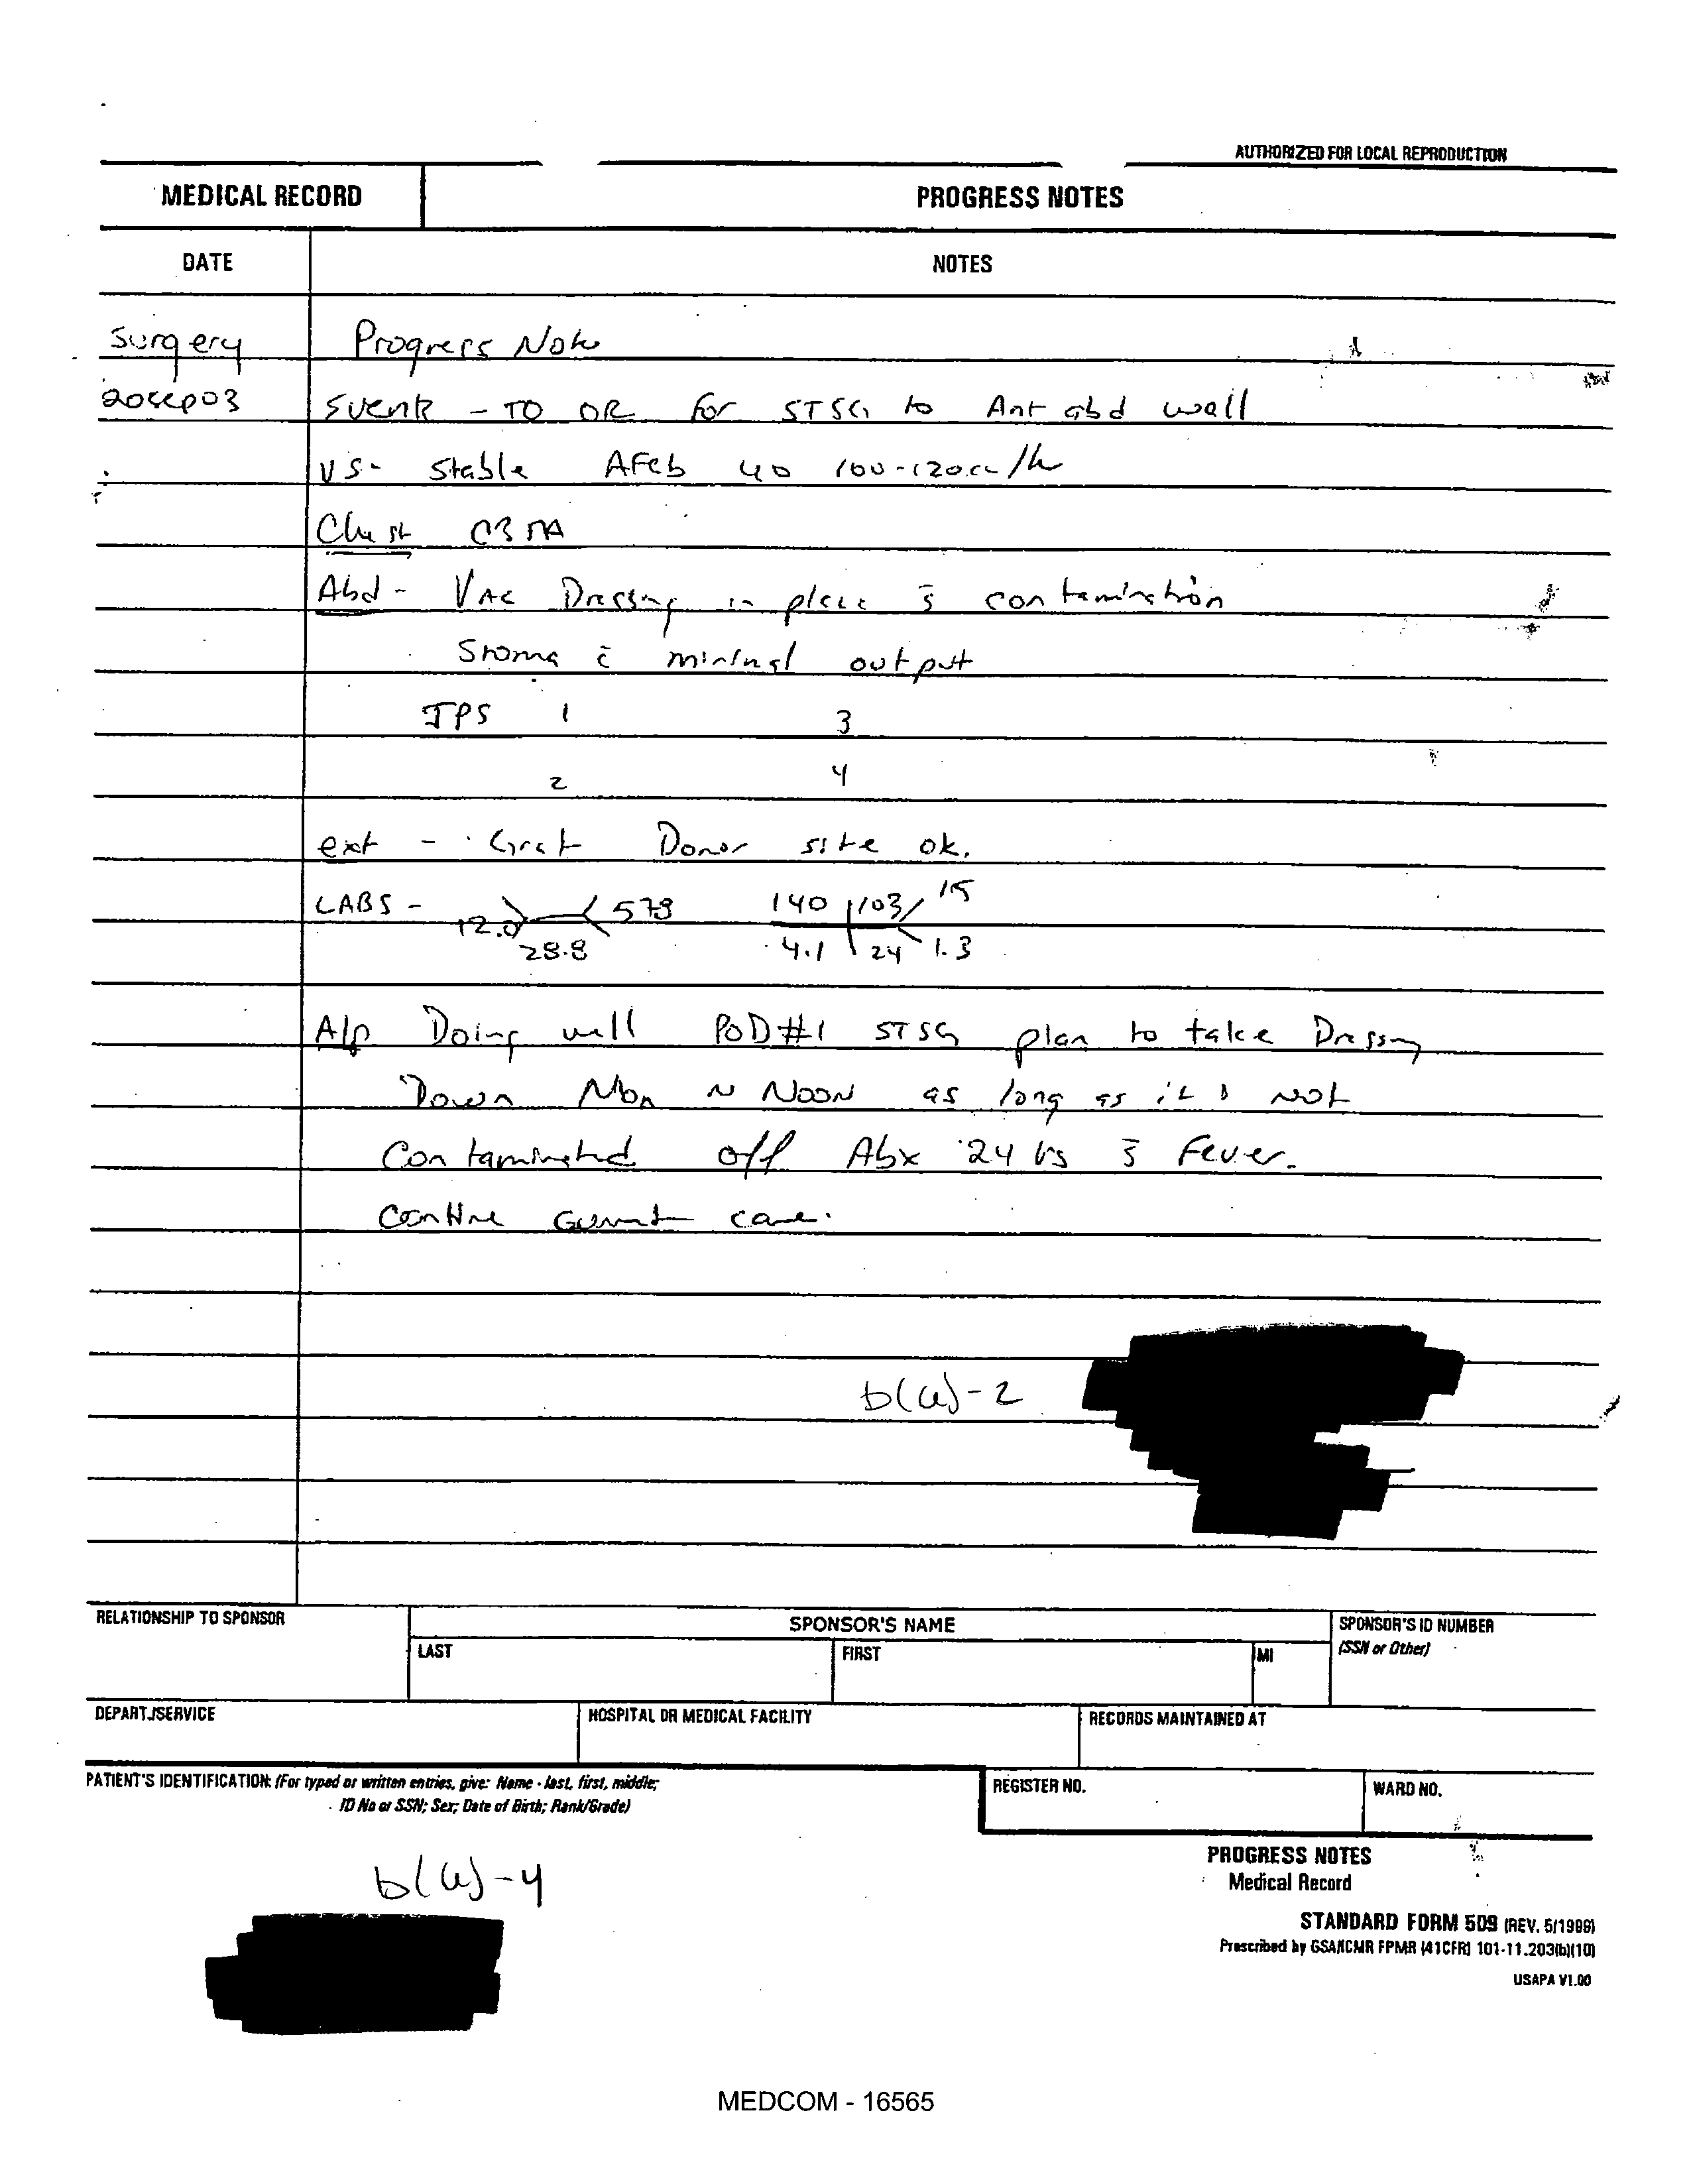 AUTHORIZED FOR LOCAL REPRODUCTION
MEDICAL RECORD PROGRESS NOTES
DATE NOTES
Surgery Progress Note
20Sep03 Events - TO OR for STSG to Ant abd wall
VS- Stable AFeb UO 100-120cc/hr
Chest CBTA
Abd - VAC Dressing in place s̄ contamination
Stoma c̄ minimal output
JPS 1 3
2 4
ext - Graft Donor site ok.
LABS - 12.0 28.8 578 140 103 15
4.1 24 1.3
A/P Doing well POD#1 STSG plan to take Dressing
Down Mon ~ Noon as long as it is not
Contaminated off Abx 24 hrs s̄ Fever.
Continue current care.
b(6)-2
RELATIONSHIP TO SPONSOR SPONSOR'S NAME SPONSOR'S ID NUMBER
LAST FIRST MI (SSN or Other)
DEPART./SERVICE HOSPITAL OR MEDICAL FACILITY RECORDS MAINTAINED AT
PATIENT'S IDENTIFICATION: (For typed or written entries, give: Name - last, first, middle; REGISTER NO. WARD NO.
ID No or SSN; Sex; Date of Birth; Rank/Grade)
PROGRESS NOTES
Medical Record
b(6)-4
STANDARD FORM 509 (REV. 5/1999)
Prescribed by GSA/ICMR FPMR (41CFR) 101-11.203(b)(10)
USAPA V1.00
MEDCOM - 16565